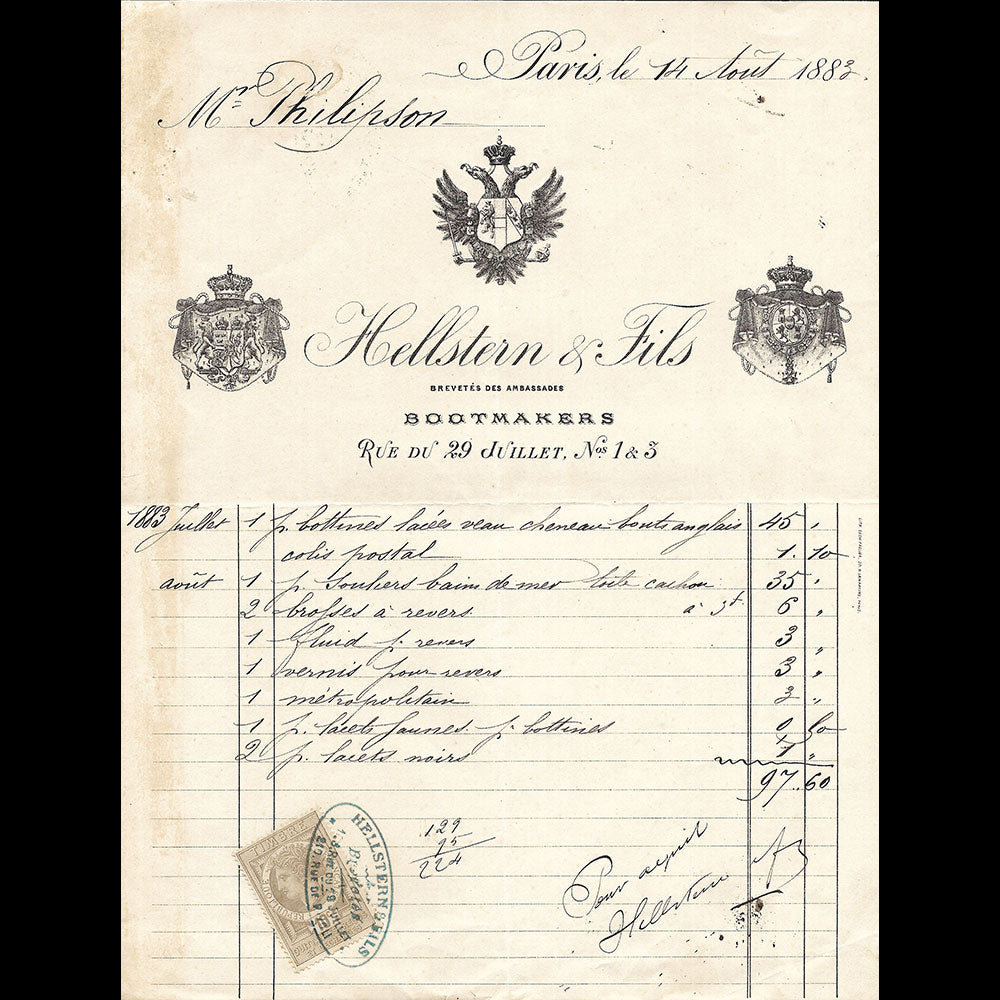 Paris, le 14 Août 1883.
Mr Philipson
Hellstern & Fils
BREVETÉS DES AMBASSADES
BOOTMAKERS
RUE DU 29 JUILLET, Nos 1 & 3
1883 Juillet 1 p. bottines lacées veau cheneau bouts anglais 45 "
colis postal 1. 10
août 1 p. Souliers bain de mer toile cachou 35 "
2 brosses à revers à 3f 6 "
1 fluid p. revers 3 "
1 vernis pour revers 3 "
1 métropolitain 3 "
1 p. lacets jaunes p. bottines 0 50
2 p. lacets noirs 1 "
97.. 60
129
95
224
Pour acquit
Hellstern
TIMBRE
HELLSTERN & FILS